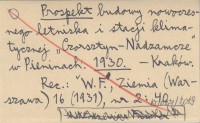 Prospekt budowy nowoczes-
nego letniska i stacji klima-
tycznej „Czorsztyn-Nadzamcze
w Pieninach. 1930. – Kraków.
Rec.: W. F., Ziemia (War-
szawa) 16 (1931), nr 2:40